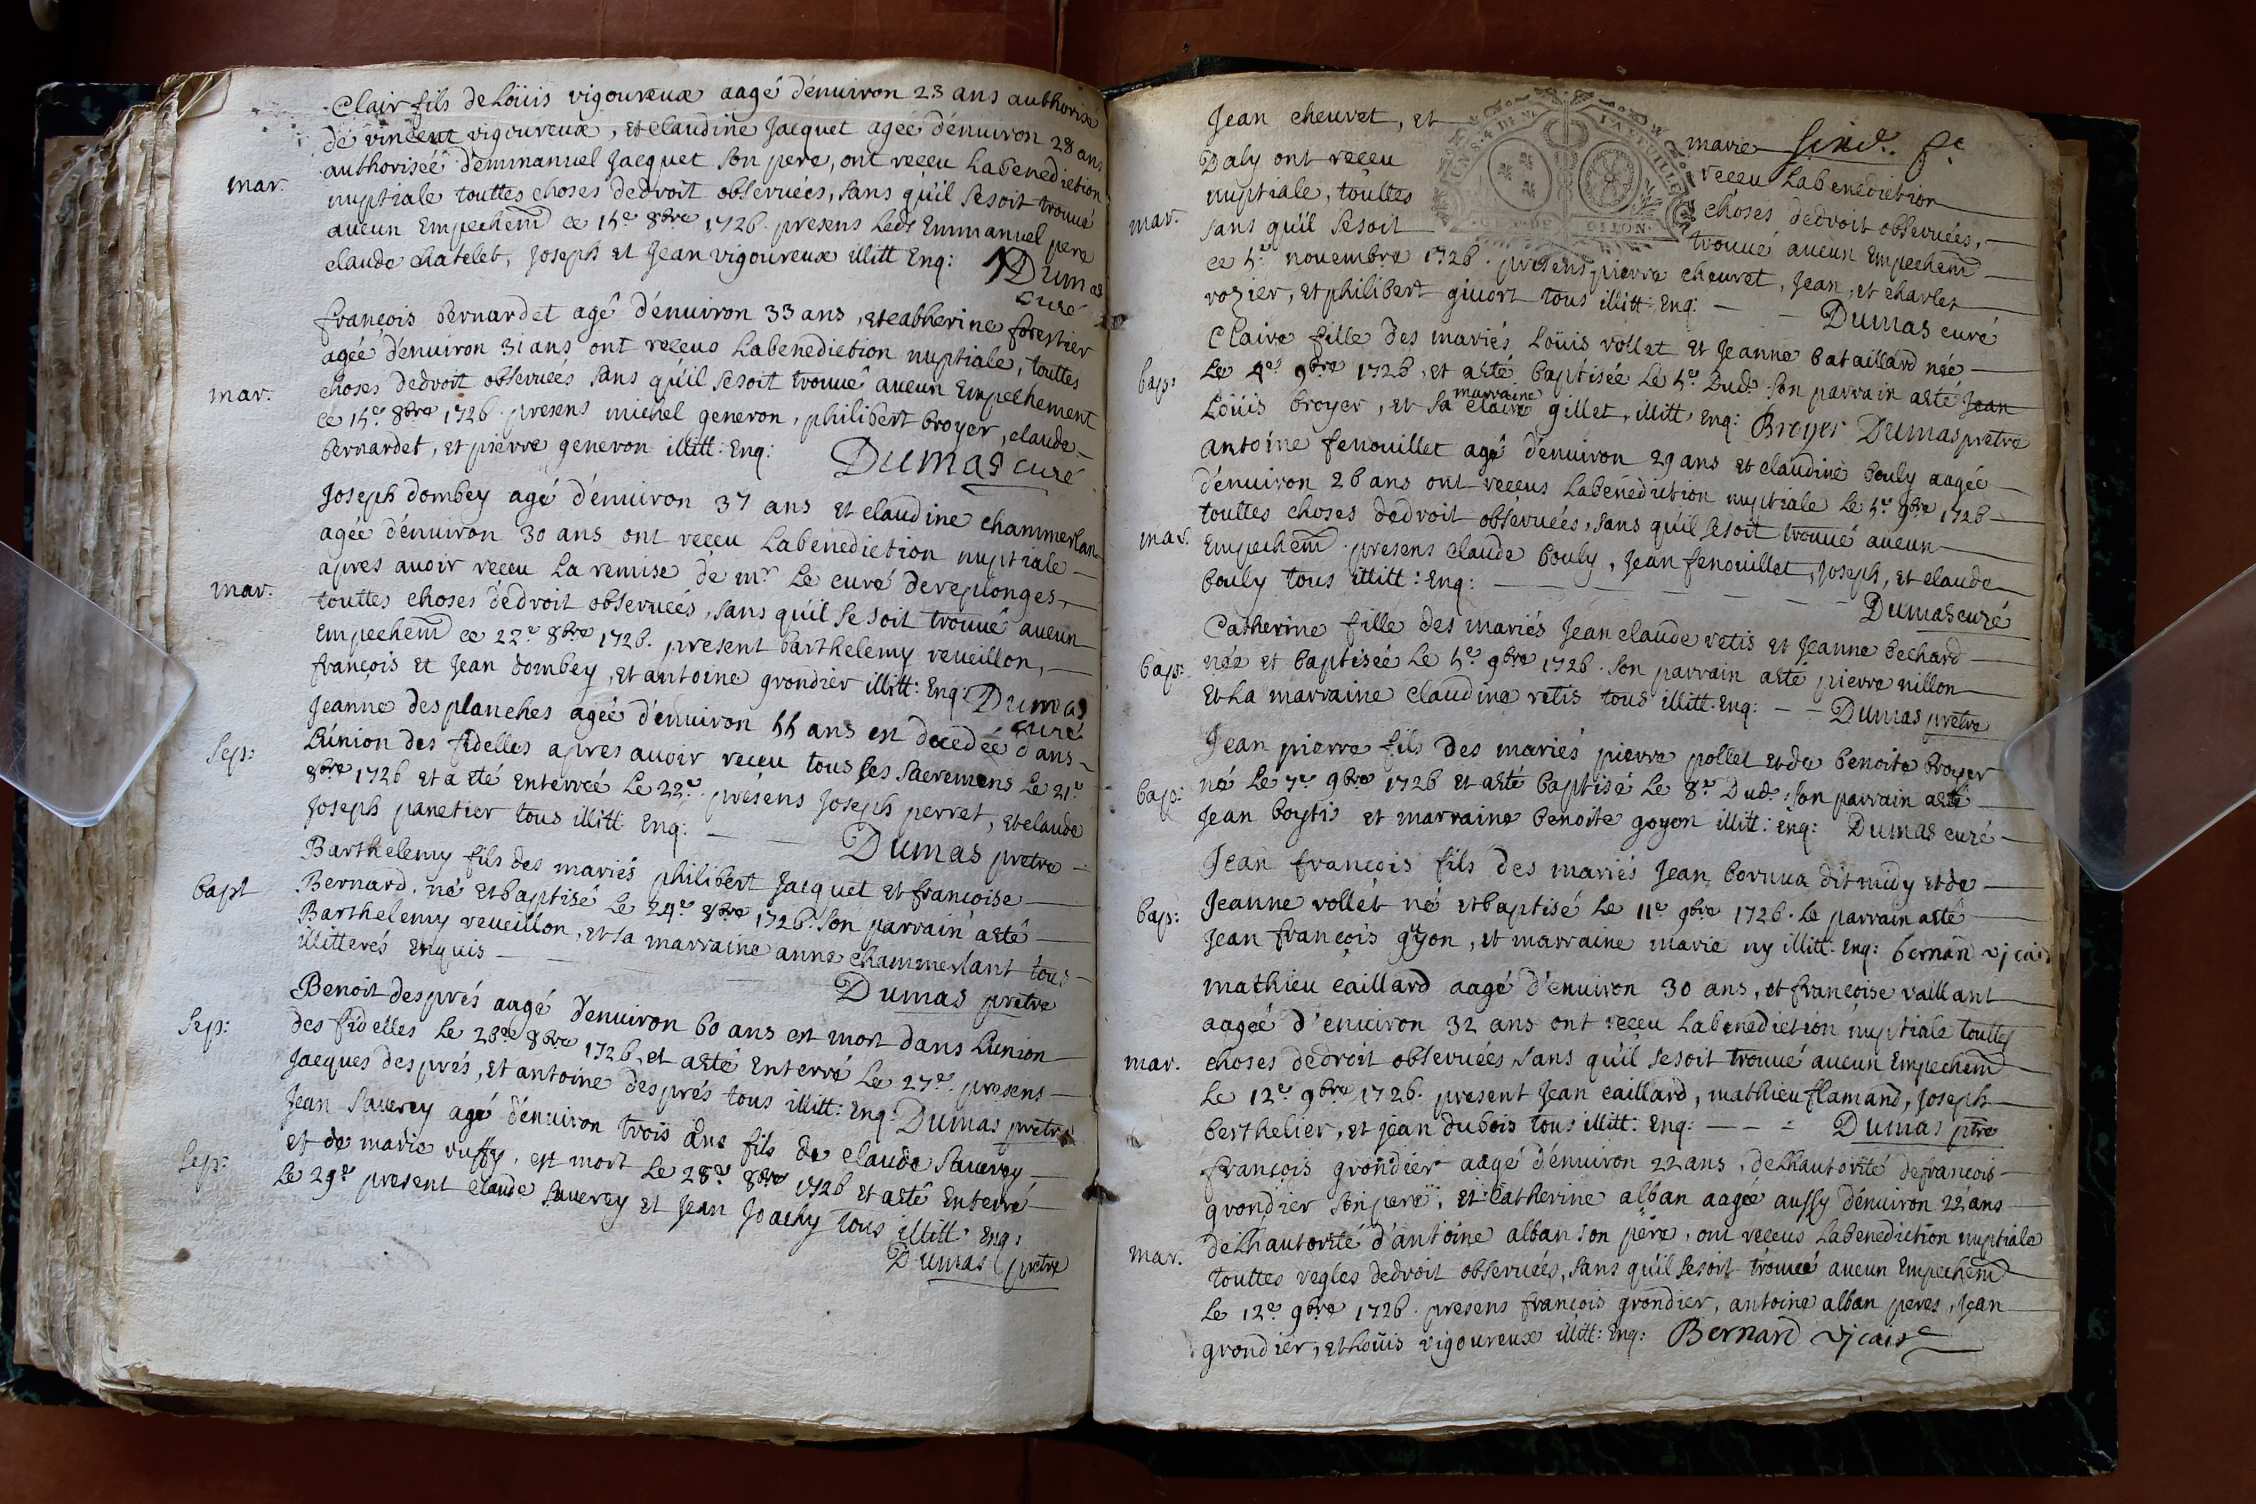 Clair fils de Loüis vigoureux aagé d'enuiron 23 ans authorisé
de vincent vigoureux, et claudine Jacquet ageé d'enuiron 28 ans
authoriseé d'emmanuel Jacquet son pere, ont receu la benediction
mar. nuptiale touttes choses de droit obserueés, sans qu'il se soit trouué
aucun Empechem̃ ce 15e 8bre 1726. presens led. Emmanuel pere
claude chatelet, Joseph et Jean vigoureux illitt Enq: Dumas
curé
françois bernardet agé d'enuiron 33 ans, et catherine forestier
ageé d'enuiron 31 ans ont receus la benediction nuptiale, touttes
mar. choses de droit obserueés sans qu'il se soit trouué aucun Empechement
ce 15e 8bre 1726. presens michel generon, philibert broyer, claude
bernardet, et pierre generon illitt: Enq: Dumas curé
Joseph dombey agé d'enuiron 37 ans et claudine chammerlan
ageé d'enuiron 30 ans ont receu la benediction nuptiale
apres auoir receu la remise de mr le curé de replonges,
mar. touttes choses de droit obserueés, sans qu'il se soit trouué aucun
Empechem̃ ce 22e 8bre 1726. present barthelemy reueillon,
françois et Jean dombey, et antoine grondier illitt: Enq: Dumas
curé
Jeanne desplanches ageé d'enuiron 55 ans est decedeé dans
Sep: L'union des fidelles apres auoir receu tous ses sacremens Le 21e
8bre 1726 et a eté enterreé Le 22e presens Joseph perret, et claude
Joseph panetier tous illitt Enq: Dumas pretre
Barthelemy fils des mariés philibert Jacquet et françoise
bapt Bernard. né et baptisé Le 24e 8bre 1726. Son parrain a eté
Barthelemy reueillon, et sa marraine anne chammerlant tous
illitterés Enquis Dumas pretre
Benoit després aagé d'enuiron 60 ans est mort dans L'union
Sep: des fidelles Le 26e 8bre 1726, et a eté Enterré Le 27e. presens
Jacques després, et antoine després tous illitt: Enq: Dumas pretre
Jean Sauerey agé d'enuiron trois ans fils de claude Sauerey
Sep: et de marie ruffy, est mort Le 28e 8bre 1726 et a eté Enterré
Le 29e present claude Sauerey et Jean Joachy tous illitt Enq:
Dumas pretre
Jean cheuret, et marie
Daly ont receu receu La benediction
nuptiale, touttes choses de droit obserueés,
mar. sans qu'il se soit trouué aucun Empechem̃
ce 5e novembre 1726. presens pierre cheuret, Jean, et charles
rozier, et philibert giuort tous illitt: Enq: Dumas curé
Claire fille des mariés Loüis vollet et Jeanne bataillard neé
bap: Le 4e 9bre 1726, et a eté baptiseé Le 5e Dud. Son parrain a eté Jean
Loüis broyer, et sa marraine claire gillet, illitt Enq: Broyer Dumas pretre
antoine fenouillet agé d'enuiron 29 ans et claudine bouly aageé
d'enuiron 26 ans ont receus La benediction nuptiale Le 5e 9bre 1726
touttes choses de droit obserueés, sans qu'il se soit trouué aucun
mar. Empechem̃ presens claude bouly, Jean fenouillet, Joseph, et claude
bouly tous illitt: Enq: Dumas curé
Catherine fille des mariés Jean claude retis et Jeanne bechard
bap: neé et baptiseé Le 5e 9bre 1726. Son parrain a eté pierre nillon
Et La marraine claudine retis tous illitt. Enq: Dumas pretre
Jean pierre fils des mariés pierre pollet et de benoite broyer
bap: né Le 7e 9bre 1726 et a eté baptisé Le 8e Dud. Son parrain a eté
Jean boytis et marraine benoite goyon illitt: Enq: Dumas curé
Jean françois fils des mariés Jean dit midy et de
bap: Jeanne vollét né et baptisé Le 11e 9bre 1726. Le parrain a eté
Jean françois goyon, et marraine marie ny illitt: Enq: bernard vicaire
mathieu caillard aagé d'enuiron 30 ans, et françoise vaillant
aageé d'enuiron 32 ans ont receu La benediction nuptiale touttes
mar. choses de droit obserueés sans qu'il se soit trouué aucun Empechem̃
Le 12e 9bre 1726. present Jean caillard, mathieu flamand, Joseph
berthelier, et jean dubois tous illitt: Enq: Dumas ptre
françois grondier aagé d'enuiron 22 ans, de Lhautorité de françois
grondier son pere, et catherine alban aageé aussy d'enuiron 22 ans
mar. de Lhautorité d'antoine alban son pere, ont receus La benediction nuptiale
touttes regles de droit obserueés, sans qu'il se soit trouué aucun Empechem̃
Le 12e 9bre 1726. presens françois grondier, antoine alban peres, Jean
grondier, et Loüis vigoureux illitt: Enq: Bernard vicaire